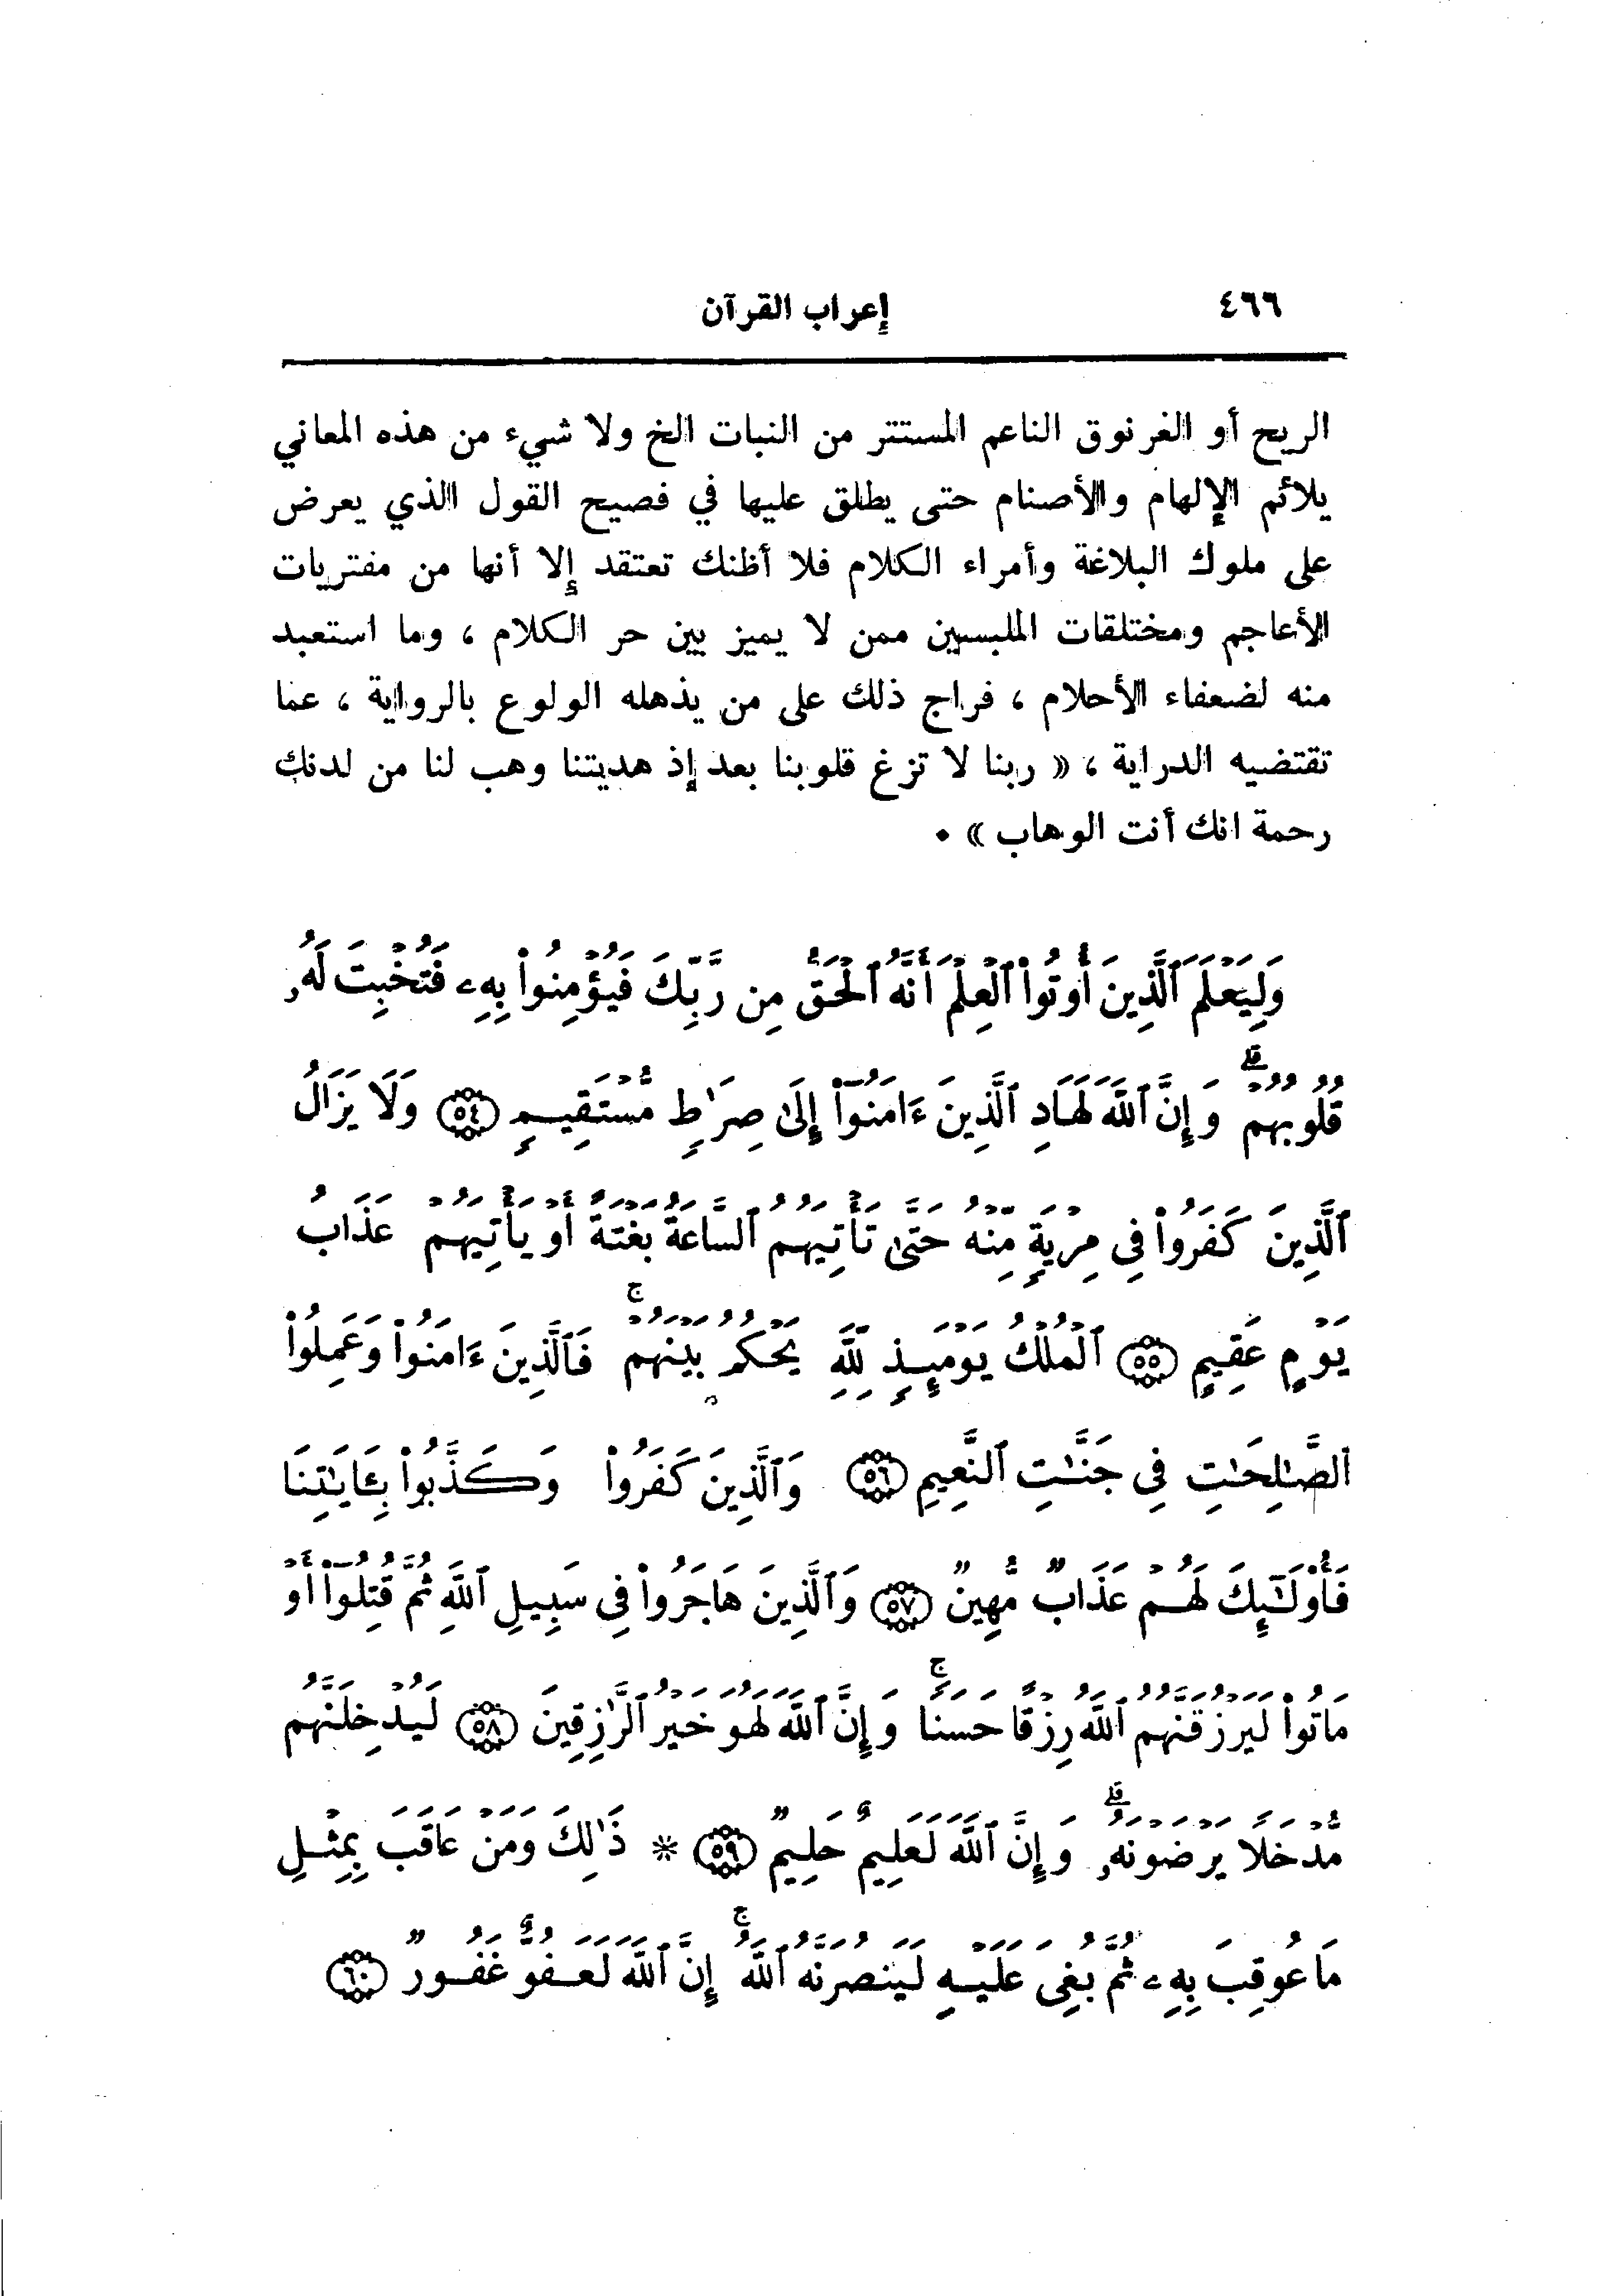 ٤٦٦ إعراب القرآن
الريح أو الغرنوق الناعم المستتر من النبات الخ ولا شيء من هذه المعاني
يلائم الإلهام والأصنام حتى يطلق عليها في فصيح القول الذي يعرض
على ملوك البلاغة وأمراء الكلام فلا أظنك تعتقد إلا أنها من مفتريات
الأعاجم ومختلقات الملبسين ممن لا يميز بين حر الكلام ، وما استعبد
منه لضعفاء الأحلام ، فراج ذلك على من يذهله الولوع بالرواية ، عما
تقتضيه الدراية ، « ربنا لا تزغ قلوبنا بعد إذ هديتنا وهب لنا من لدنك
رحمة انك أنت الوهاب » .
وَلِيَعْلَمَ ٱلَّذِينَ أُوتُوا۟ ٱلْعِلْمَ أَنَّهُ ٱلْحَقُّ مِن رَّبِّكَ فَيُؤْمِنُوا۟ بِهِۦ فَتُخْبِتَ لَهُۥ
قُلُوبُهُمْ ۗ وَإِنَّ ٱللَّهَ لَهَادِ ٱلَّذِينَ ءَامَنُوٓا۟ إِلَىٰ صِرَٰطٍ مُّسْتَقِيمٍ ﴿٥٤﴾ وَلَا يَزَالُ
ٱلَّذِينَ كَفَرُوا۟ فِى مِرْيَةٍ مِّنْهُ حَتَّىٰ تَأْتِيَهُمُ ٱلسَّاعَةُ بَغْتَةً أَوْ يَأْتِيَهُمْ عَذَابُ
يَوْمٍ عَقِيمٍ ﴿٥٥﴾ ٱلْمُلْكُ يَوْمَئِذٍ لِّلَّهِ يَحْكُمُ بَيْنَهُمْ ۚ فَٱلَّذِينَ ءَامَنُوا۟ وَعَمِلُوا۟
ٱلصَّٰلِحَٰتِ فِى جَنَّٰتِ ٱلنَّعِيمِ ﴿٥٦﴾ وَٱلَّذِينَ كَفَرُوا۟ وَكَذَّبُوا۟ بِـَٔايَٰتِنَا
فَأُو۟لَٰٓئِكَ لَهُمْ عَذَابٌ مُّهِينٌ ﴿٥٧﴾ وَٱلَّذِينَ هَاجَرُوا۟ فِى سَبِيلِ ٱللَّهِ ثُمَّ قُتِلُوٓا۟ أَوْ
مَاتُوا۟ لَيَرْزُقَنَّهُمُ ٱللَّهُ رِزْقًا حَسَنًا ۚ وَإِنَّ ٱللَّهَ لَهُوَ خَيْرُ ٱلرَّٰزِقِينَ ﴿٥٨﴾ لَيُدْخِلَنَّهُم
مُّدْخَلًا يَرْضَوْنَهُۥ ۗ وَإِنَّ ٱللَّهَ لَعَلِيمٌ حَلِيمٌ ﴿٥٩﴾ * ذَٰلِكَ وَمَنْ عَاقَبَ بِمِثْلِ
مَا عُوقِبَ بِهِۦ ثُمَّ بُغِىَ عَلَيْهِ لَيَنصُرَنَّهُ ٱللَّهُ ۚ إِنَّ ٱللَّهَ لَعَفُوٌّ غَفُورٌ ﴿٦٠﴾